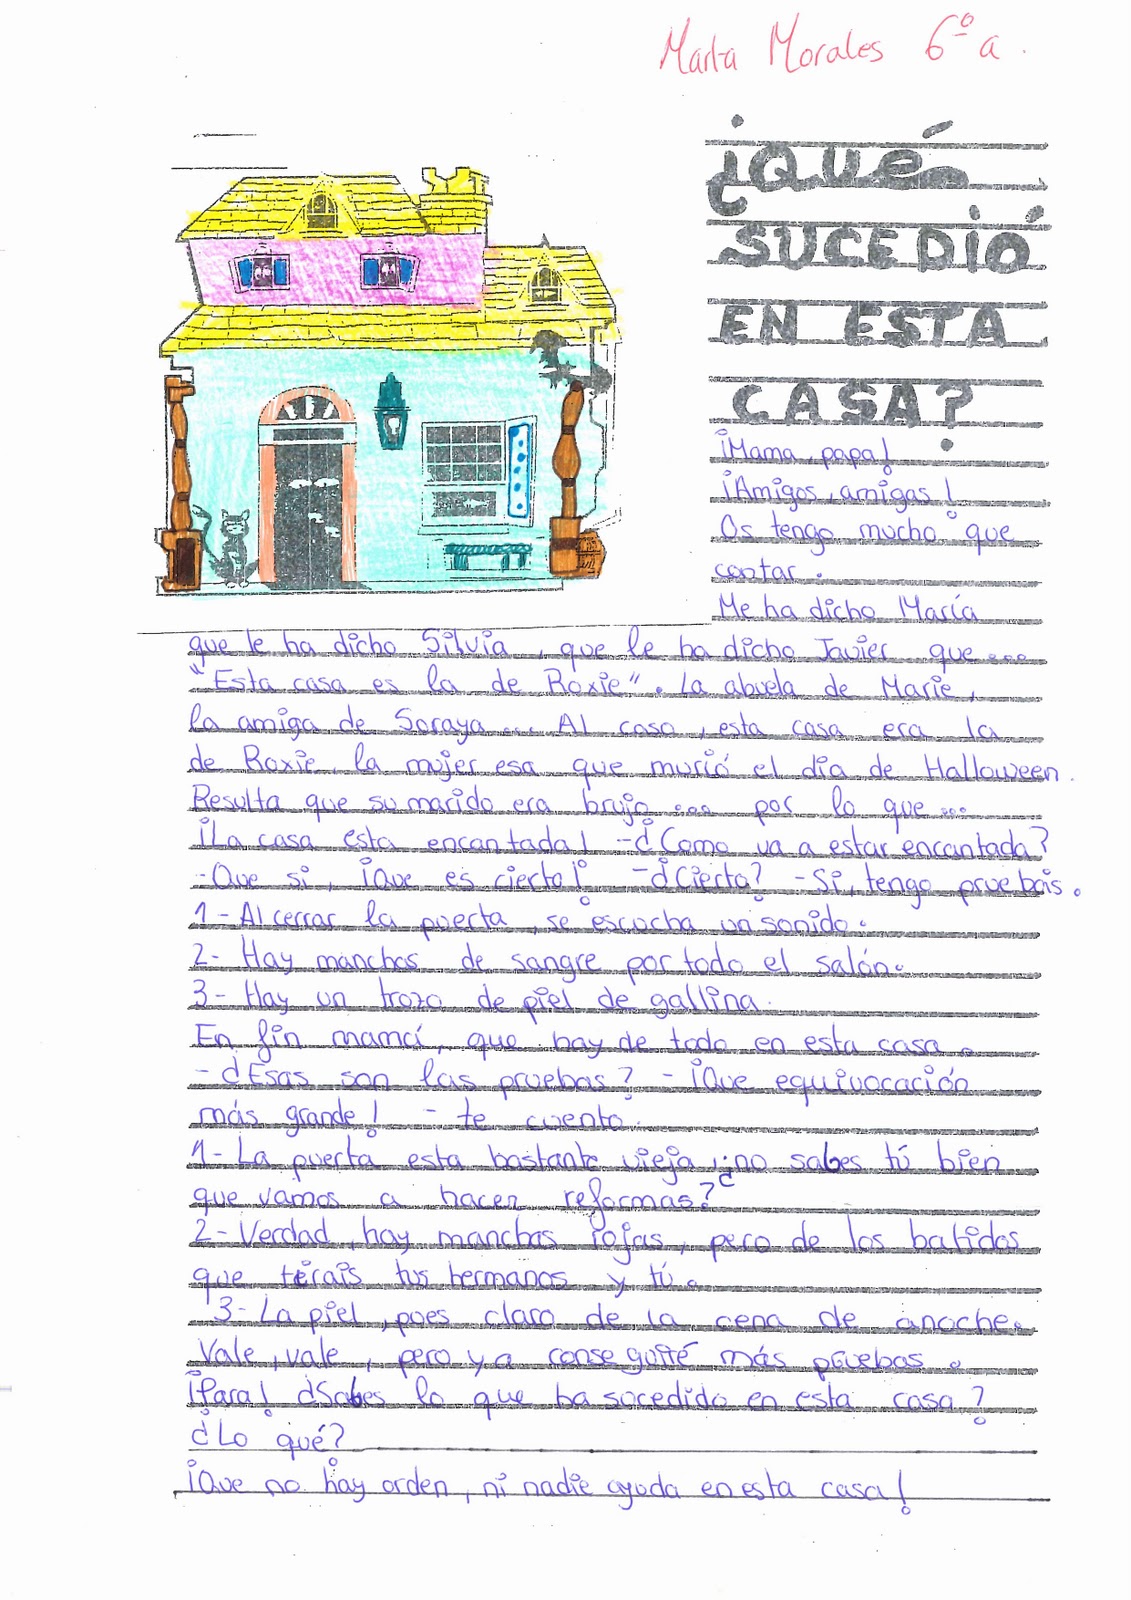 Marta Morales 6º a.
¡QUÉ
SUCEDIÓ
EN ESTA
CASA?
¡Mama, papa!
¡Amigos, amigas!
Os tengo mucho que
contar.
Me ha dicho María
que le ha dicho Silvia, que le ha dicho Javier que ...
"Esta casa es la de Roxie". La abuela de Marie,
la amiga de Soraya... Al caso, esta casa era la
de Roxie, la mujer esa que murió el día de Halloween.
Resulta que su marido era brujo ... por lo que ...
¡La casa esta encantada! -¿Como va a estar encantada?
-Que si, ¡Que es cierto! -¿Cierto? -Si, tengo pruebas.
1- Al cerrar la puerta, se escucha un sonido.
2- Hay manchas de sangre por todo el salón.
3- Hay un trozo de piel de gallina.
En fin mamá, que hay de todo en esta casa.
-¿Esas son las pruebas? -¡Que equivocación
más grande! - te cuento.
1- La puerta esta bastante vieja, ¿no sabes tú bien
que vamos a hacer reformas?
2- Verdad, hay manchas rojas, pero de los batidos
que teráis tus hermanos y tú.
3- La piel, pues claro de la cena de anoche.
Vale, vale, pero ya conseguiré más pruebas.
¡Para! ¿Sabes lo que ha socedido en esta casa?
¿Lo qué?
¡Que no hay orden, ni nadie ayuda en esta casa!